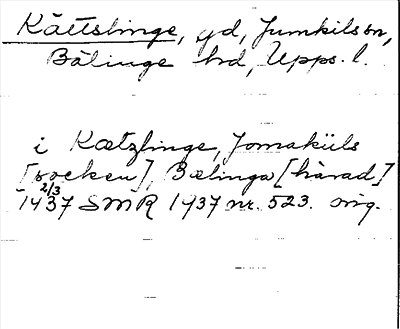 Kättslinge, gd, Jumkils sn,
Bälinge hd, Upps. l.
i Kætzlinge, Jomaküls
[socken], Bælinga [härad]
2/3
1437 SMR 1937 nr. 523. orig.